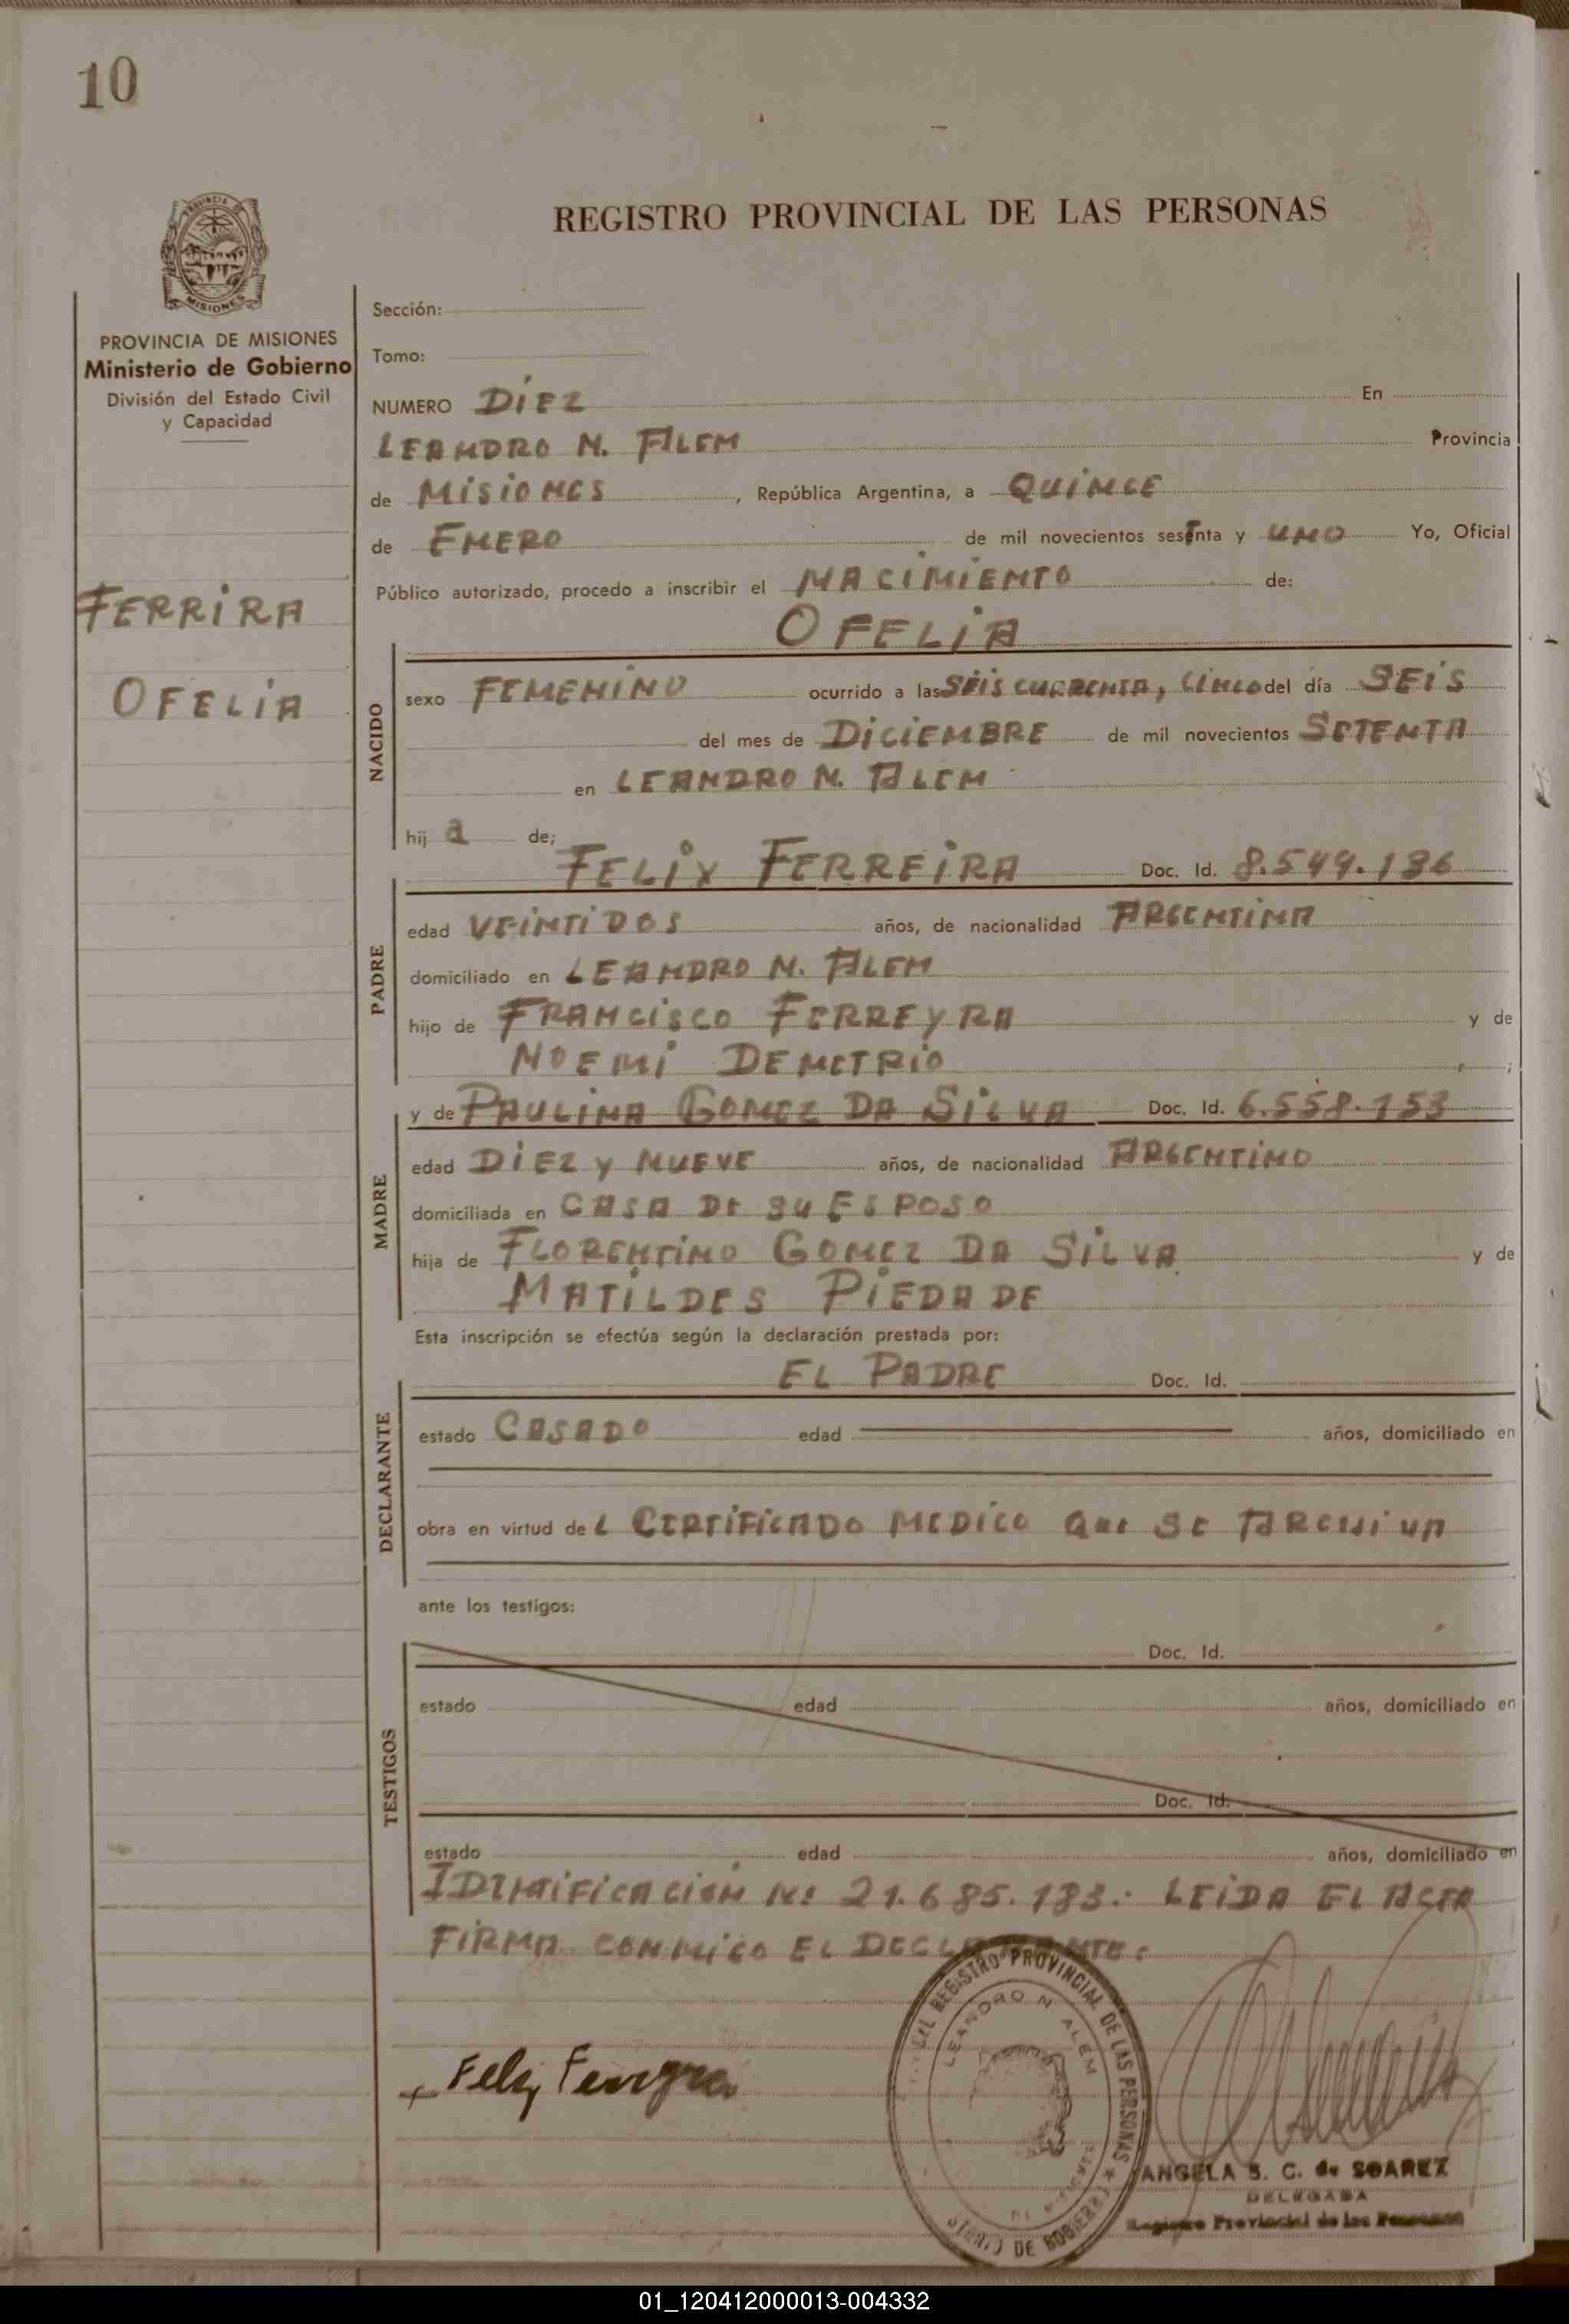 10
REGISTRO PROVINCIAL DE LAS PERSONAS
PROVINCIA DE
MISIONES
PROVINCIA DE MISIONES
Ministerio de Gobierno
División del Estado Civil
y Capacidad
FERRIRA
OFELIA
Sección:
Tomo:
NUMERO DIEZ En
LEANDRO N. ALEM Provincia
de MISIONES, República Argentina, a QUINCE
de ENERO de mil novecientos setenta y UNO Yo, Oficial
Público autorizado, procedo a inscribir el NACIMIENTO de:
OFELIA
NACIDO
sexo FEMENINO ocurrido a las SEIS CUARENTA, CINCO del día SEIS
del mes de DICIEMBRE de mil novecientos SETENTA
en LEANDRO N. ALEM
hij a de;
FELIX FERREIRA Doc. Id. 8.549.136
PADRE
edad VEINTIDOS años, de nacionalidad ARGENTINA
domiciliado en LEANDRO N. ALEM
hijo de FRANCISCO FERREYRA y de
NOEMI DEMETRIO ;
y de PAULINA GOMEZ DA SILVA Doc. Id. 6.558.153
MADRE
edad DIEZ Y NUEVE años, de nacionalidad ARGENTINO
domiciliada en CASA DE SU ESPOSO
hija de FLORENTINO GOMEZ DA SILVA y de
MATILDES PIEDADE
Esta inscripción se efectúa según la declaración prestada por:
EL PADRE Doc. Id.
DECLARANTE
estado CASADO edad años, domiciliado en
obra en virtud de L CERTIFICADO MEDICO QUE SE
ante los testigos:
TESTIGOS
Doc. Id.
estado edad años, domiciliado en
Doc. Id.
estado edad años, domiciliado en
IDENTIFICACION N: 21.685.183.- LEIDA EL ACTA
FIRMA CONMIGO EL DECLARANTE.
Felix Ferreyra
DEL REGISTRO PROVINCIAL DE LAS PERSONAS
LEANDRO N. ALEM
MISIONES
DE GOBIERNO
ANGELA S. C. de SOAREZ
DELEGADA
Registro Provincial de las Personas
01_120412000013-004332